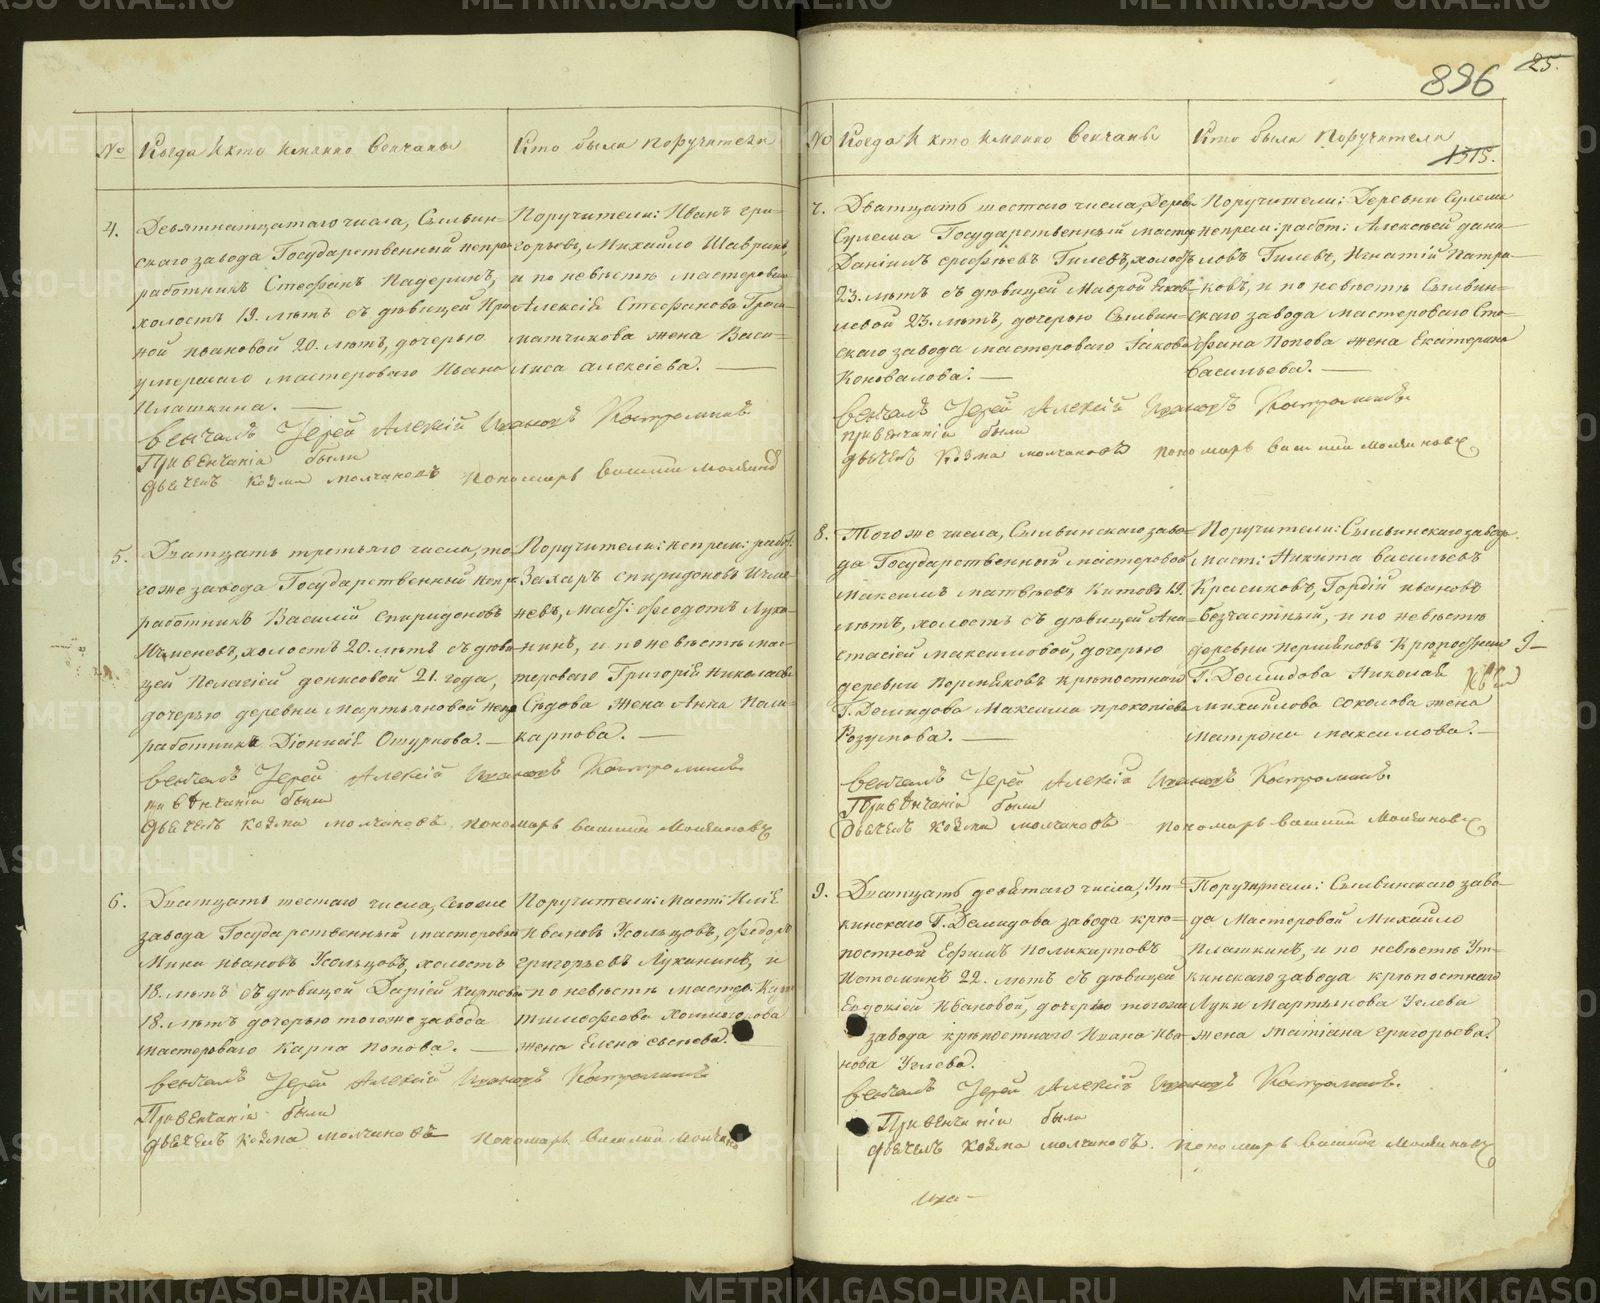 896
25.
№
Когда и кто именно венчаны
Кто были поручители
4.
Девятнатцатаго числа, Сылвин-
скаго завода Государственный непре
работникъ Стефанъ Падеринъ,
холостъ 19. лѣтъ съ дѣвицей Ири
ной Ивановой 20. лѣтъ, дочерью
умершаго мастероваго Ивана
Плашкина.
Поручители: Иванъ Гри-
горьевъ, Михайло Шавринъ,
и по невѣстѣ мастероваго
Алексія Стефанова
жена Васи-
лиса Алексіева.
Венчалъ Іерей Алексій Ивановъ Костроминъ
При венчаніи были
дьячекъ Козма Молчановъ пономарь Василий Молчановъ
5.
Дватцать третьяго числа, то
гоже завода Государственный непр
работникъ Василій Спиридоновъ
Ичменевъ, холостъ 20. лѣтъ съ дѣви
цей Пелагіей Денисовой 21. года,
дочерью деревни Мартьяновой непр
работника Діонисія Ошуркова.
Поручители: непрем: работ.
Захаръ Спиридоновъ Ичме-
невъ, Маст: Феодотъ Луха-
нинъ, и по невѣстѣ мас-
тероваго Григорія Николаева
Сѣдова жена Анна Поли-
карпова.
Венчалъ Іерей Алексій Ивановъ Костроминъ.
При венчаніи были
дьячекъ Козма Молчановъ пономарь Василий Молчановъ
6.
Дватцать шестаго числа,
завода Государственный мастеровой
Мина Ивановъ Усольцовъ, холостъ
18. лѣтъ съ дѣвицей Даріей Карповой
18. лѣтъ дочерью тогоже завода
мастероваго Карпа Попова.
Поручители: Маст: Илія
Ивановъ Усольцовъ, Федоръ
Григорьевъ Луханинъ, и
по невѣстѣ мастер.
Тимофеева
жена Елена
Венчалъ Іерей Алексій Ивановъ Костроминъ
При венчаніи были
дьячекъ Козма Молчановъ пономарь Василий Молчановъ
№
Когда и кто именно венчаны
Кто были поручители
1315.
7.
Дватцать шестаго числа, Дерев.
Сулема Государственный мастер
Даніилъ Ерофѣевъ Гилевъ, холостъ
23. лѣтъ съ дѣвицей Маврой Яков-
левой 23. лѣтъ, дочерью Сылвин-
скаго завода мастероваго Іакова
Коновалова.
Поручители: Деревни Сулема
непрем: работ: Алексѣй Дани-
ловъ Гилевъ, Игнатій Патра-
ковъ, и по невѣстѣ Сылвин-
скаго завода мастероваго Сте-
фана Попова жена Екатерина
Васильева.
Венчалъ Іерей Алексій Ивановъ Костроминъ.
При венчаніи были
дьячекъ Козма Молчановъ пономарь Василий Молчановъ
8.
Тогоже числа, Сылвинскаго заво-
да Государственный мастеровой
Максимъ Матвѣевъ Китовъ 19.
лѣтъ, холостъ съ дѣвицей Ана-
стасіей Максимовой, дочерью
деревни крѣпостнаго
Г. Демидова Максима Прокопіева
Розумова.
Поручители: Сылвинскаго завода
маст: Никита Васильевъ
Красиковъ, Гордій Ивановъ
Безчастный, и по невѣстѣ
деревни
Г. Демидова Николая
Михайлова Соколова жена
Матрона Максимова.
Венчалъ Іерей Алексій Ивановъ Костроминъ.
При венчаніи были
дьячекъ Козма Молчановъ пономарь Василий Молчановъ
9.
Дватцать девятаго числа, Ут-
кинскаго Г. Демидова завода крѣ-
постной Ефимъ Поликарповъ
Истоминъ 22. лѣтъ съ дѣвицей
Евдокіей Ивановой, дочерью тогоже
завода крѣпостнаго Ивана Ива-
нова Углева.
Поручители: Сылвинскаго заво-
да Мастеровой Михайло
Плашкинъ, и по невѣстѣ Ут-
кинскаго завода крѣпостнаго
Луки Мартынова Углева
жена Татіана Григорьева.
Венчалъ Іерей Алексій Ивановъ Костроминъ.
При венчаніи были
дьячекъ Козма Молчановъ. пономарь Василий Молчановъ
METRIKI.GASO-URAL.RU